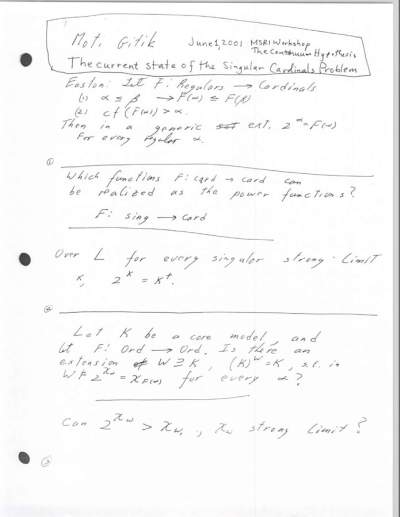 Moti Gitik June 1, 2001 MSRI Workshop
The Continuum Hypothesis
The current state of the Singular Cardinals Problem
Easton: Let F: Regulars → Cardinals
(1) α ≤ β → F(α) ≤ F(β)
(2) cf(F(α)) > α.
Then in a generic ext. 2^α = F(α)
For every regular α.
①
Which functions F: card → card can
be realized as the power functions?
F: sing → card
Over L for every singular strong-Limit
κ, 2^κ = κ⁺.
②
Let K be a core model, and
let F: Ord → Ord. Is there an
extension of W ⊇ K, (K)^W = K, s.t. in
W ⊨ 2^ℵα = ℵF(α) for every α?
Can 2^ℵω > ℵω₁, ℵω strong limit?
③